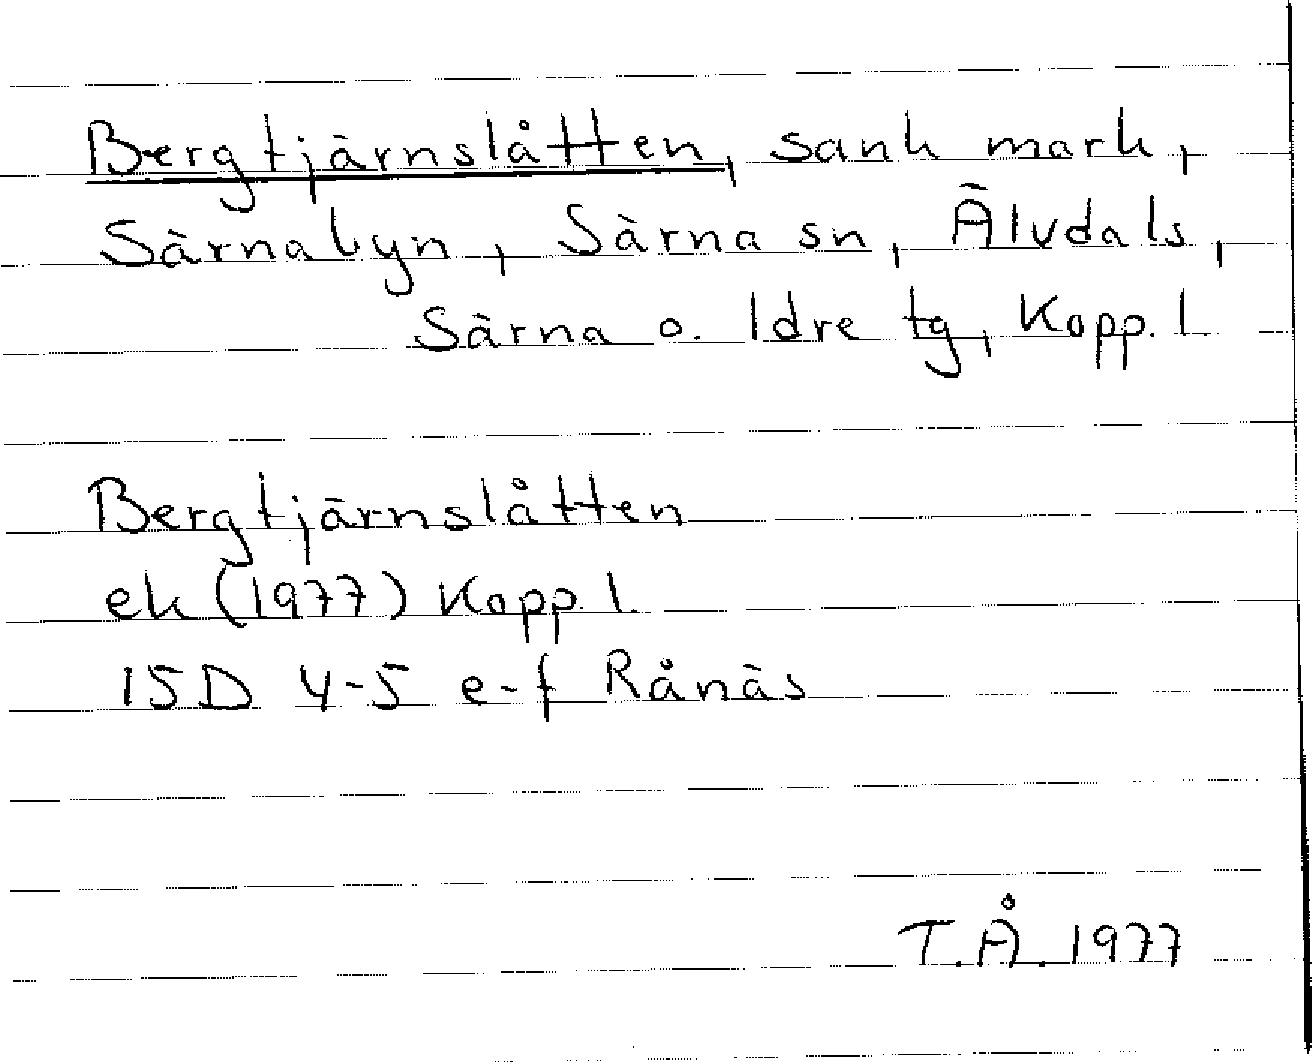 Bergtjärnslåtten, sank mark,
Särnabyn, Särna sn, Älvdals,
Särna o. Idre tg, Kopp. l
Bergtjärnslåtten
ek (1977) Kopp. l.
15D 4-5 e-f Rånäs
T.Å. 1977